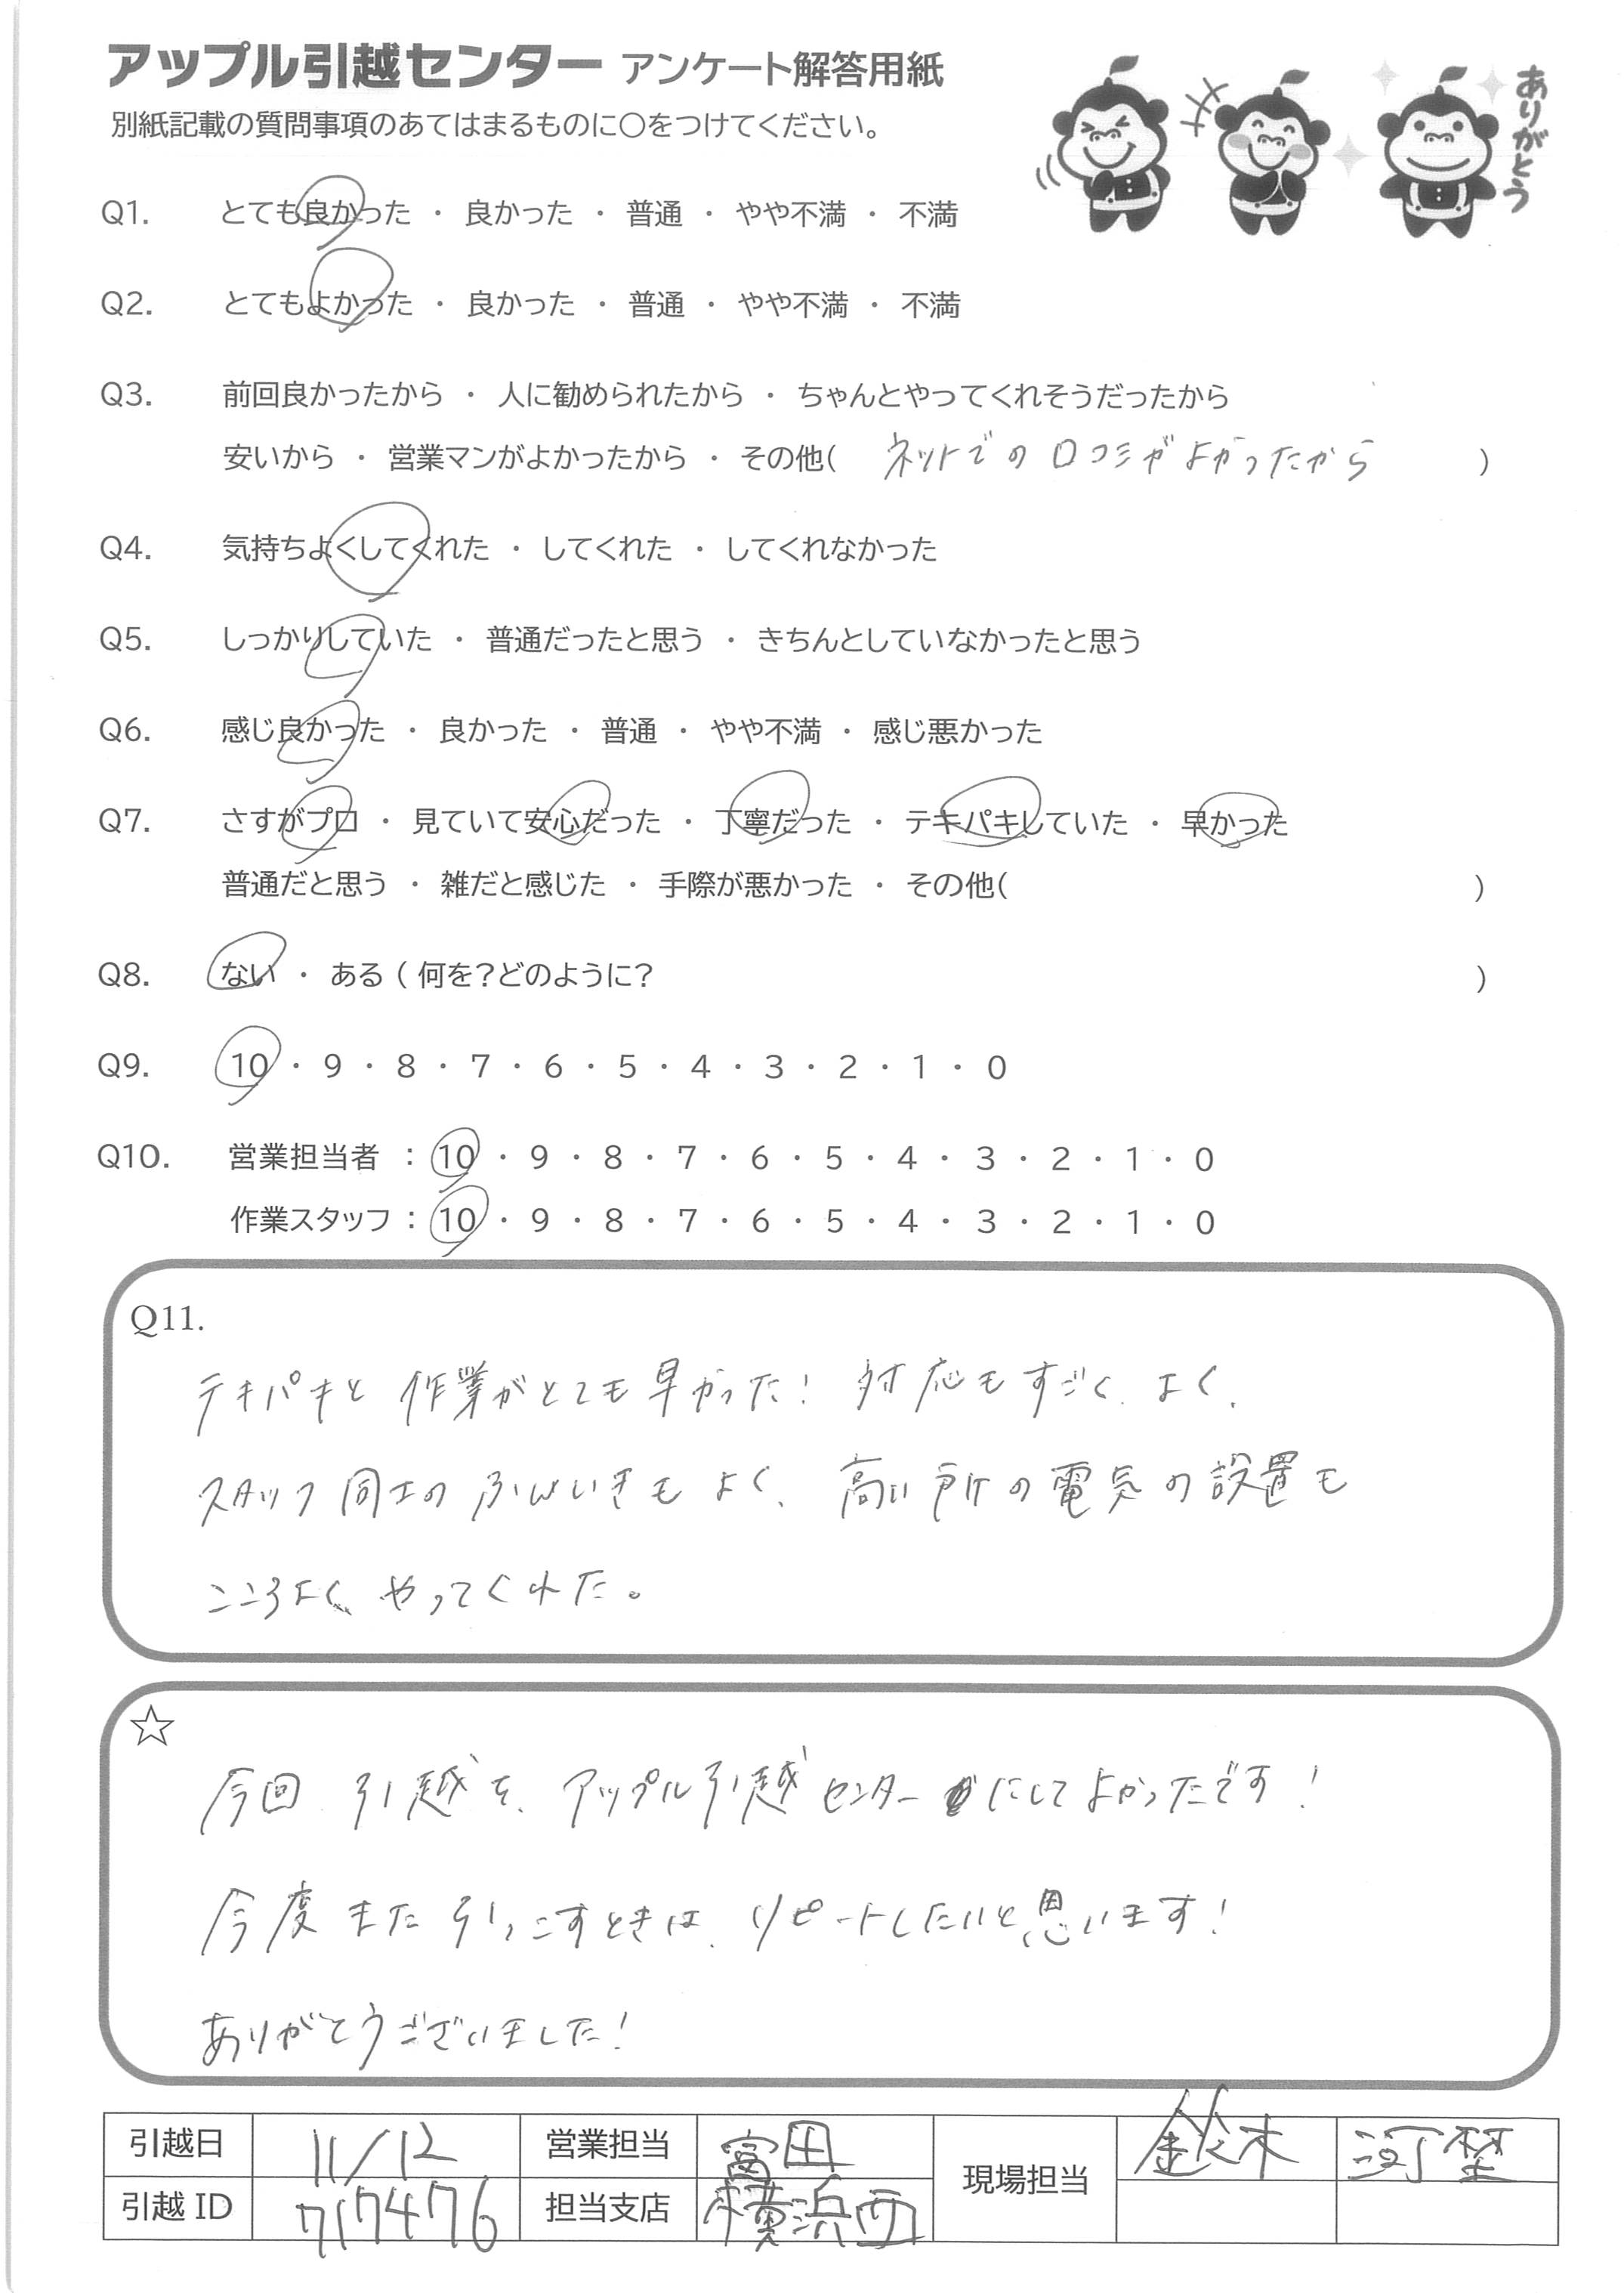 アップル引越センター アンケート解答用紙
別紙記載の質問事項のあてはまるものに○をつけてください。
ありがとう
Q1. とても良かった ・ 良かった ・ 普通 ・ やや不満 ・ 不満
Q2. とてもよかった ・ 良かった ・ 普通 ・ やや不満 ・ 不満
Q3. 前回良かったから ・ 人に勧められたから ・ ちゃんとやってくれそうだったから
安いから ・ 営業マンがよかったから ・ その他( ネットでの口コミがよかったから )
Q4. 気持ちよくしてくれた ・ してくれた ・ してくれなかった
Q5. しっかりしていた ・ 普通だったと思う ・ きちんとしていなかったと思う
Q6. 感じ良かった ・ 良かった ・ 普通 ・ やや不満 ・ 感じ悪かった
Q7. さすがプロ ・ 見ていて安心だった ・ 丁寧だった ・ テキパキしていた ・ 早かった
普通だと思う ・ 雑だと感じた ・ 手際が悪かった ・ その他( )
Q8. ない ・ ある ( 何を?どのように? )
Q9. 10 ・ 9 ・ 8 ・ 7 ・ 6 ・ 5 ・ 4 ・ 3 ・ 2 ・ 1 ・ 0
Q10. 営業担当者 : 10 ・ 9 ・ 8 ・ 7 ・ 6 ・ 5 ・ 4 ・ 3 ・ 2 ・ 1 ・ 0
作業スタッフ : 10 ・ 9 ・ 8 ・ 7 ・ 6 ・ 5 ・ 4 ・ 3 ・ 2 ・ 1 ・ 0
Q11.
テキパキと作業がとても早かった! 対応もすごくよく、
スタッフ同士のふんいきもよく、高い所の電気の設置も
こころよくやってくれた。
☆
今回引越を、アップル引越センターにしてよかったです!
今度また引っこすときは、リピートしたいと思います!
ありがとうございました!
引越日 11/12 営業担当 富田 現場担当 鈴木 河埜
引越ID 717476 担当支店 横浜西